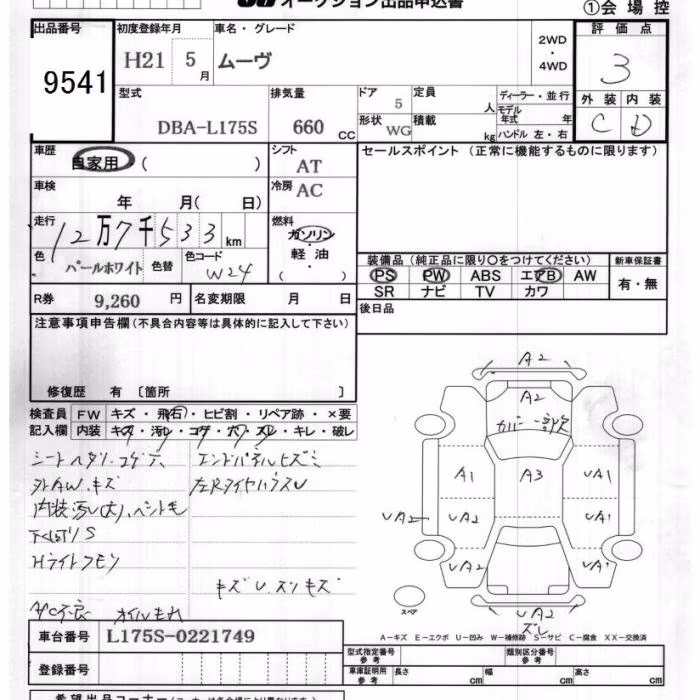 オークション出品申込書
①会場控
出品番号
9541
初度登録年月
H21 5月
車名・グレード
ムーヴ
2WD
・
4WD
評価点
3
外装 内装
C D
型式
DBA-L175S
排気量
660 CC
ドア
5
形状
WG
定員
人
積載
kg
ディーラー・並行
モデル年式 年
ハンドル 左・右
車歴
自家用 ( )
シフト
AT
セールスポイント (正常に機能するものに限ります)
車検
年 月( 日)
冷房
AC
走行
12万7千533km
燃料
ガソリン
・
軽油
・
( )
色
パールホワイト
色替
色コード
W24
装備品 (純正品に限り○をつけてください)
PS PW ABS エアB AW
SR ナビ TV カワ
新車保証書
有・無
R券 9,260 円
名変期限 月 日
後日品
注意事項申告欄(不具合内容等は具体的に記入して下さい)
修復歴 有 〔箇所 〕
検査員記入欄
FW キズ・飛石・ヒビ割・リペア跡・×要
内装 キズ・汚レ・コゲ・穴・スレ・キレ・破レ
シートヘタリ・コゲ穴
エンドパネルヒズミ
外AW.キズ
左Rタイヤハウスu
内装汚レ(大).ペット毛
下廻りS
Hライトクモリ
キズu.スリキズ
A/C不良
オイルもれ
A2
A2
カバー一部欠
A1
A3
uA1
uA2
uA2
uA1
uA2
uA2
uA2
ズレ
スペア
A－キズ E－エクボ U－凹み W－補修跡 S－サビ C－腐食 XX－交換済
車台番号
L175S-0221749
登録番号
型式指定番号
参考
類別区分番号
参考
車庫証明用
参考
長さ cm
幅 cm
高さ cm
希望出品コーナー